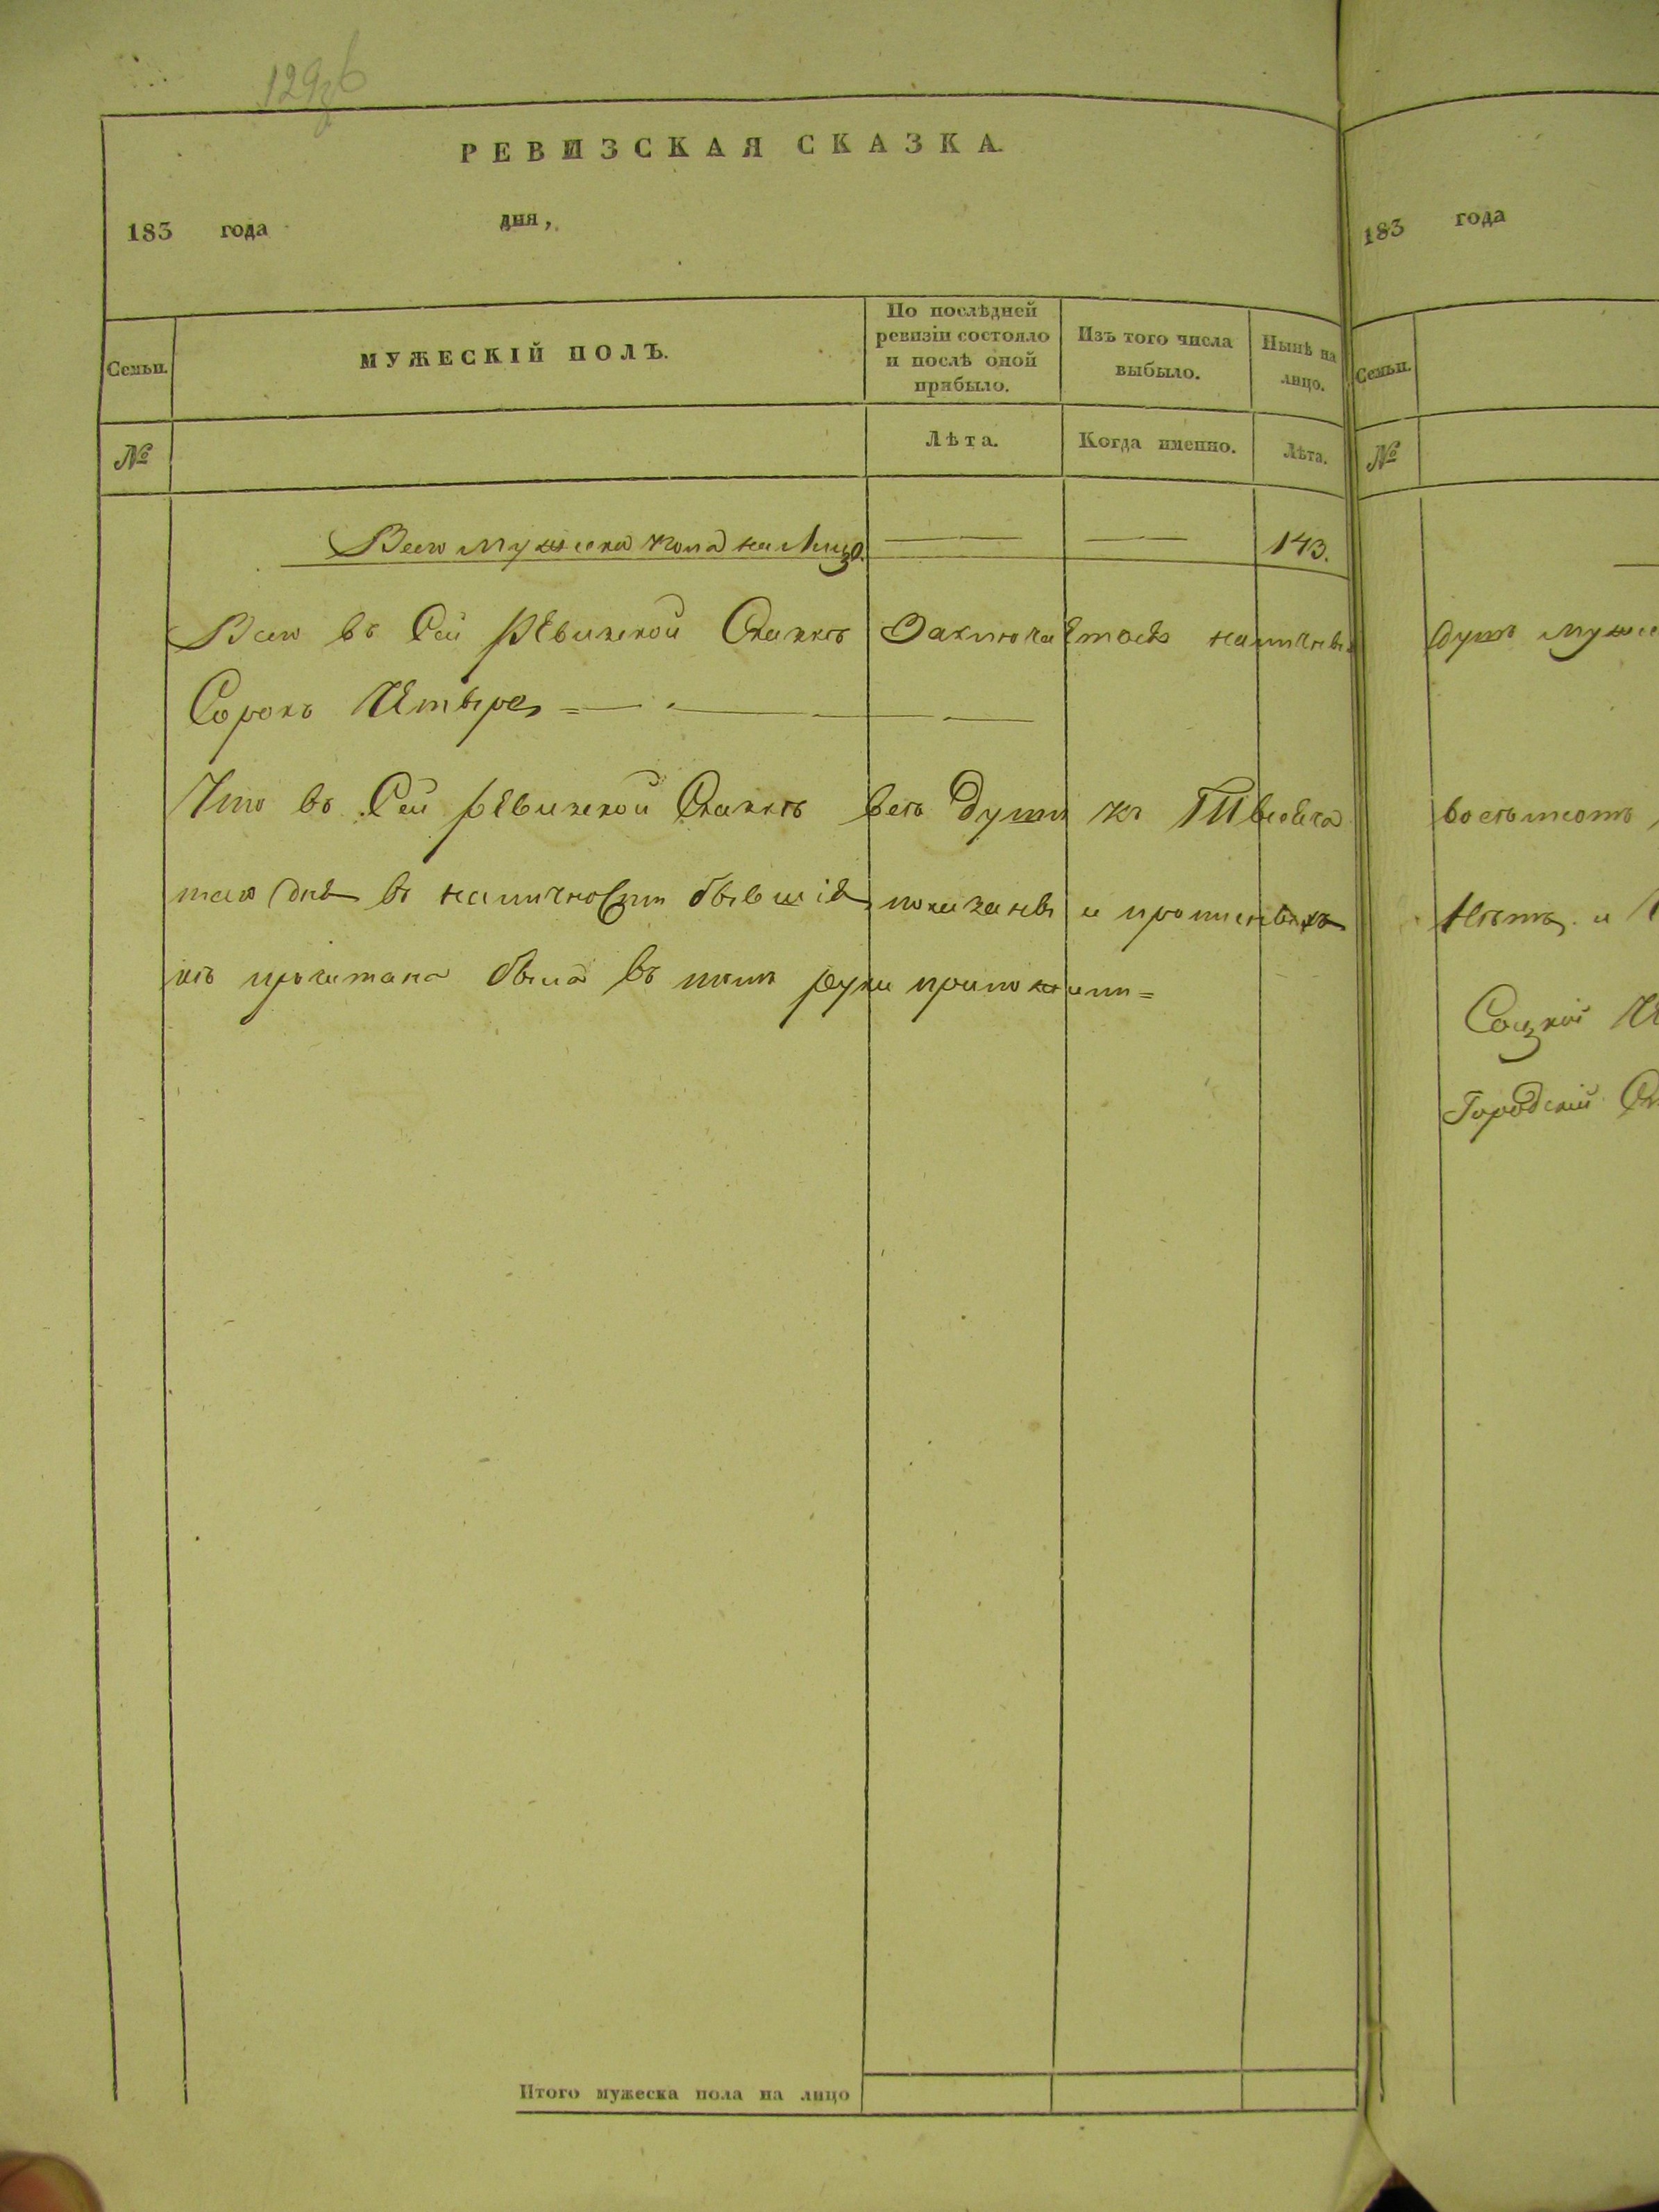 129
РЕВИЗСКАЯ СКАЗКА.
183 года дня,
Семьи.
МУЖЕСКІЙ ПОЛЪ.
По послѣдней ревизіи состояло и послѣ оной прибыло.
Изъ того числа выбыло.
Нынѣ на лицо.
№
Лѣта.
Когда именно.
Лѣта.
Всего мужеска пола на Лицо. 143.
Всего въ Сей рЕвизской Сказкѣ Заключаетось наличны
Сорокъ ЧЕтыре
Что въ Сей рЕвизской Сказкѣ всѣ душѣ къ
дня въ наличности бывшіе показаны и
прочитана была въ руки приложили=
Итого мужеска пола на лицо
183 года
Семьи.
№
душъ муже
Соцкой
Городский